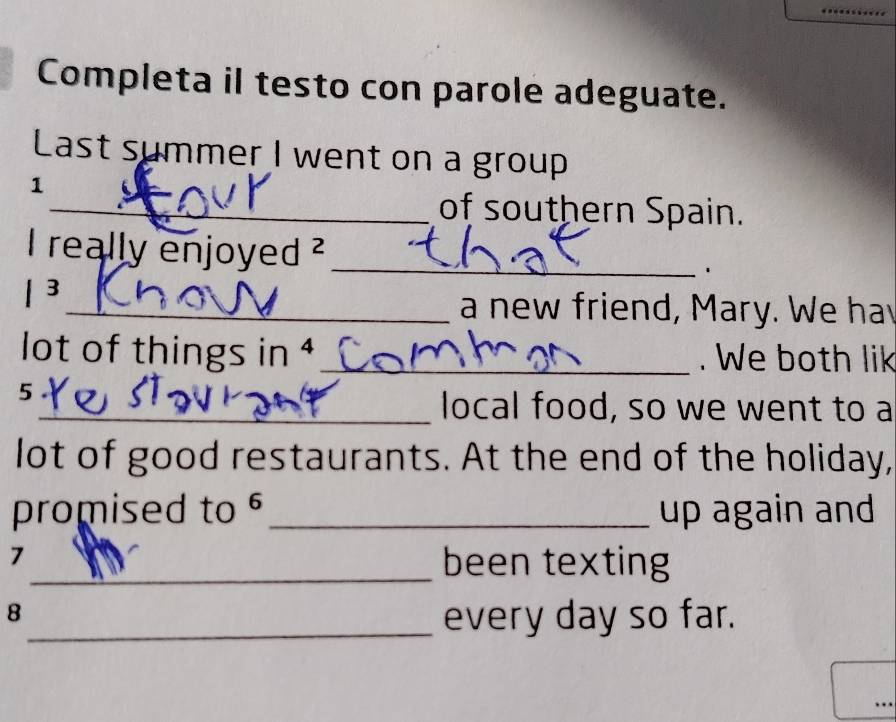 Completa il testo con parole adeguate.
Last summer I went on a group
1 tour of southern Spain.
I really enjoyed 2 that.
I 3 Know a new friend, Mary. We hav
lot of things in 4 common. We both lik
5 restaurant local food, so we went to a
lot of good restaurants. At the end of the holiday,
promised to 6 up again and
7 been texting
8 every day so far.